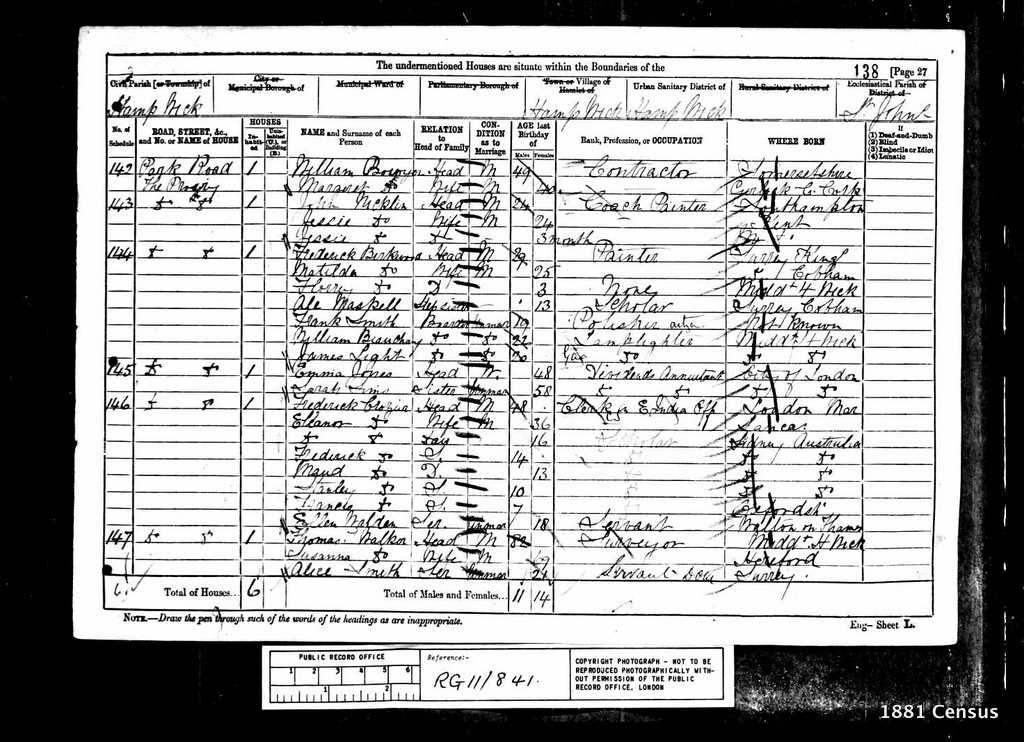 The undermentioned Houses are situate within the Boundaries of the
138 [Page 27
Civil Parish [or Township] of
City or Municipal Borough of
Municipal Ward of
Parliamentary Borough of
Town or Village of Hamlet of
Urban Sanitary District of
Rural Sanitary District of
Ecclesiastical Parish of District of
Hamp Wick Hamp Wick Hamp Wick St Johns
No. of Schedule
ROAD, STREET, &c., and No. or NAME of HOUSE
HOUSES
Inhabited
Uninhabited (U.), or Building (B.)
NAME and Surname of each Person
RELATION to Head of Family
CONDITION as to Marriage
AGE last Birthday of
Males Females
Rank, Profession, or OCCUPATION
WHERE BORN
If
(1) Deaf-and-Dumb
(2) Blind
(3) Imbecile or Idiot
(4) Lunatic
142 Park Road 1 William Head M 49 Contractor Somersetshire
The Margaret Wife 40
143 Do Do 1 John Nicklin Head M 24 Coach Painter Southampton
Jessie Do Wife M 24 Kent
Jessie Do 3 month
144 1 Frederick Birkwood Head M 29 Painter Surrey
Matilda Do Wife M 25 Do Cobham
Florry Do D 3 None Midd H Wick
Maskell 13 Scholar Surrey Cobham
Frank Smith Unmar 19 Polisher Not known
William Do Do 22 Lamplighter Midd H Wick
James Light Do Do 20 Gas Do Do Do
145 Do Do 1 Emma Jones Head W 48 Dividends Annuitant City of London
Sarah Sister Unmar 58
146 1 Frederick Head M 48 Clerk in E. India Off London Mar
Eleanor Do Wife M 36
Do Do Daur 16 Scholar Sidney Australia
Frederick Do S 14 Do Do
Maud Do D. 13 Do Do
Stanley Do S. 10 Do Do
Francis Do S. 7 Oxfordsh
Ellen Walden Ser. Unmar 18 Servant Walton on Thames
147 1 Thomas Walker Head M 82 Surveyor Midd H Wick
Susanna Do Wife M Hereford
Alice Smith Ser Unmar 24 Servant Dom Surrey
6 Total of Houses... 6 Total of Males and Females... 11 14
NOTE.—Draw the pen through such of the words of the headings as are inappropriate.
Eng— Sheet L.
PUBLIC RECORD OFFICE
1 2 3 4 5 6
1 2
Reference:-
RG 11/841.
COPYRIGHT PHOTOGRAPH - NOT TO BE
REPRODUCED PHOTOGRAPHICALLY WITH-
OUT PERMISSION OF THE PUBLIC
RECORD OFFICE, LONDON
1881 Census